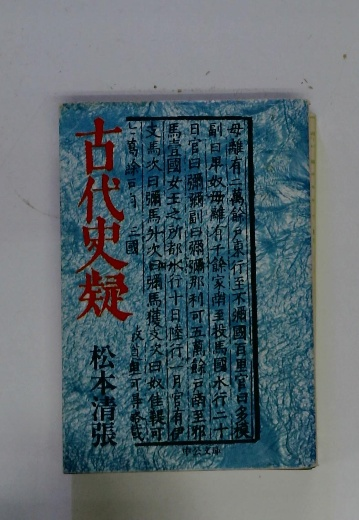 古代史疑
松本清張
毋離有二萬餘戸東行至不彌國百里官曰多模
副曰卑奴毋離有千餘家南至投馬國水行二十
日官曰彌彌副曰彌彌那利可五萬餘戸南至邪
馬壹國女王之所都水行十日陸行一月官有伊
支馬次曰彌馬升次曰彌馬獲支次曰奴佳鞮可
七萬餘戸
中公文庫